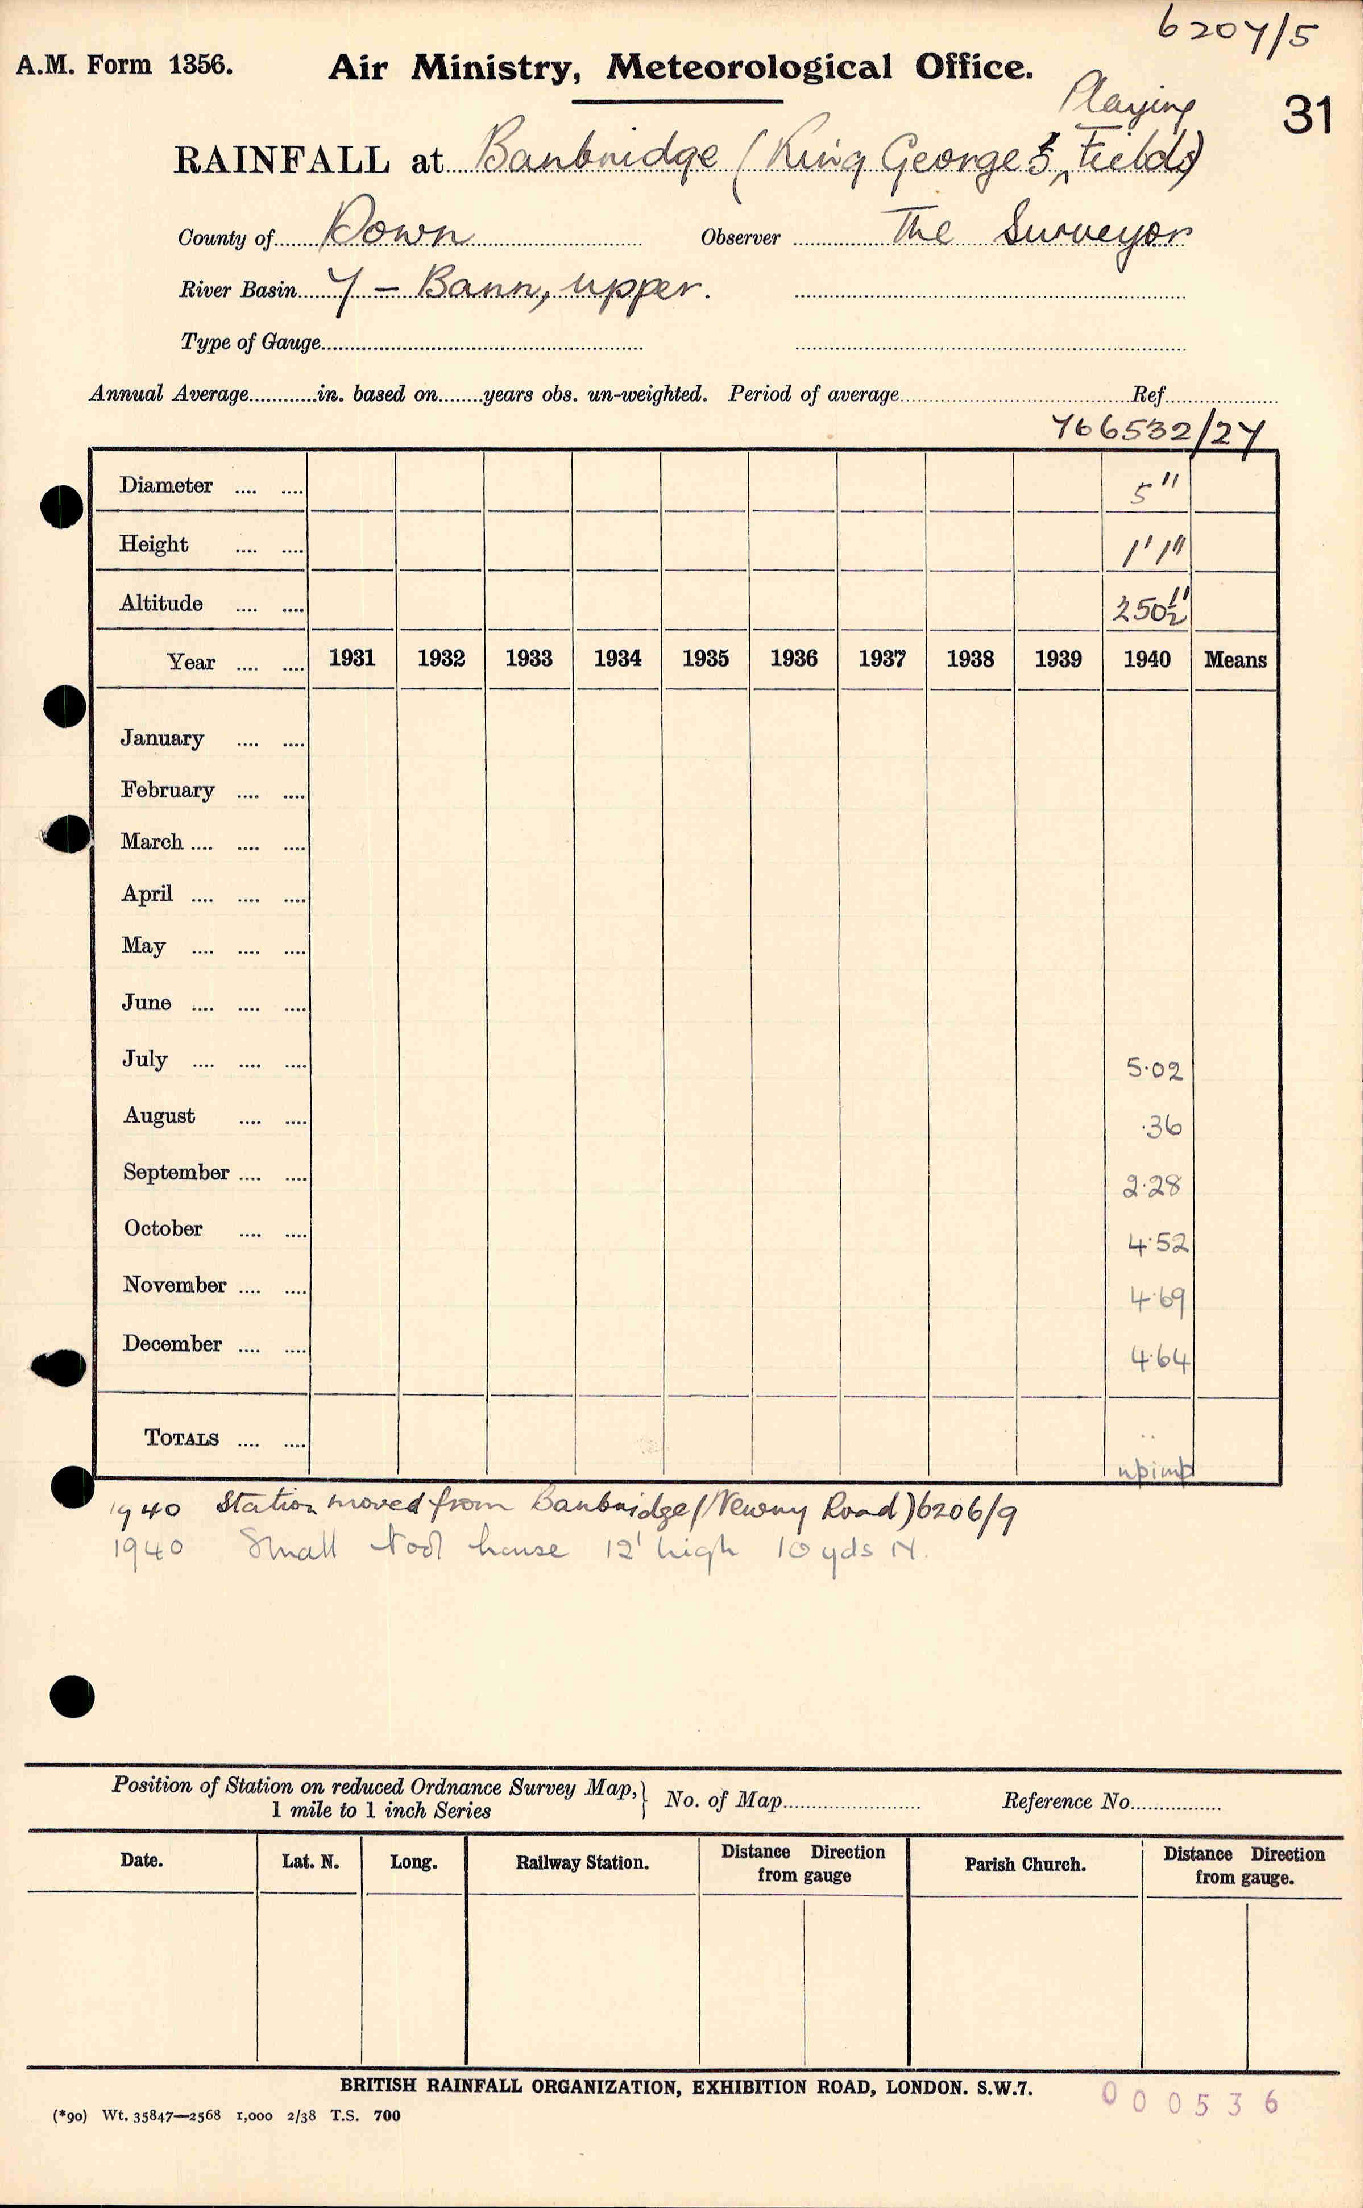 6207/5
A.M. Form 1356. Air Ministry, Meteorological Office.
31
Playing
RAINFALL at Banbridge (King George 5, Fields)
County of Down Observer The Surveyor
River Basin 7 - Bann, upper.
Type of Gauge
Annual Average in. based on years obs. un-weighted. Period of average Ref
766532/27
Diameter 5"
Height 1' 1"
Altitude
Year 1931 1932 1933 1934 1935 1936 1937 1938 1939 1940 Means
January
February
March
April
May
June
July 5.02
August .36
September 2.28
October 4.52
November 4.69
December 4.64
TOTALS
1940 Station moved from Banbridge (Newry Road) 6206/9
1940 Small tool house 12' high 10 yds N.
Position of Station on reduced Ordnance Survey Map, No. of Map Reference No.
1 mile to 1 inch Series
Date. Lat. N. Long. Railway Station. Distance Direction from gauge Parish Church. Distance Direction from gauge.
BRITISH RAINFALL ORGANIZATION, EXHIBITION ROAD, LONDON. S.W.7.
000536
(*90) Wt. 35847—2568 1,000 2/38 T.S. 700